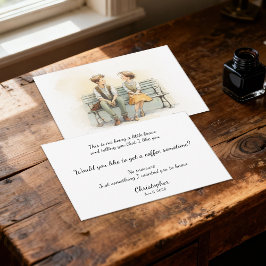 This is me being a little brave
and telling you that I like you.
Would you like to get a coffee sometime?
No pressure
Just something I wanted you to know
Christopher